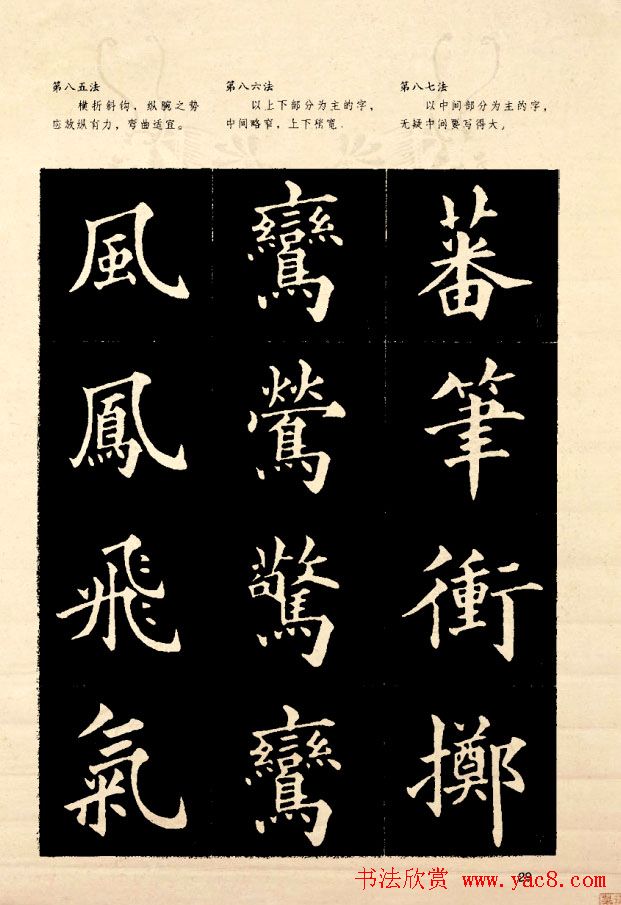 第八五法
横折斜钩，纵腕之势
应放纵有力，弯曲适宜。
第八六法
以上下部分为主的字，
中间略窄，上下稍宽．
第八七法
以中间部分为主的字，
无疑中间要写得大。
風
鳳
飛
氣
鸞
鶯
驚
鸞
蕃
筆
衝
擲
29
书法欣赏 www.yac8.com